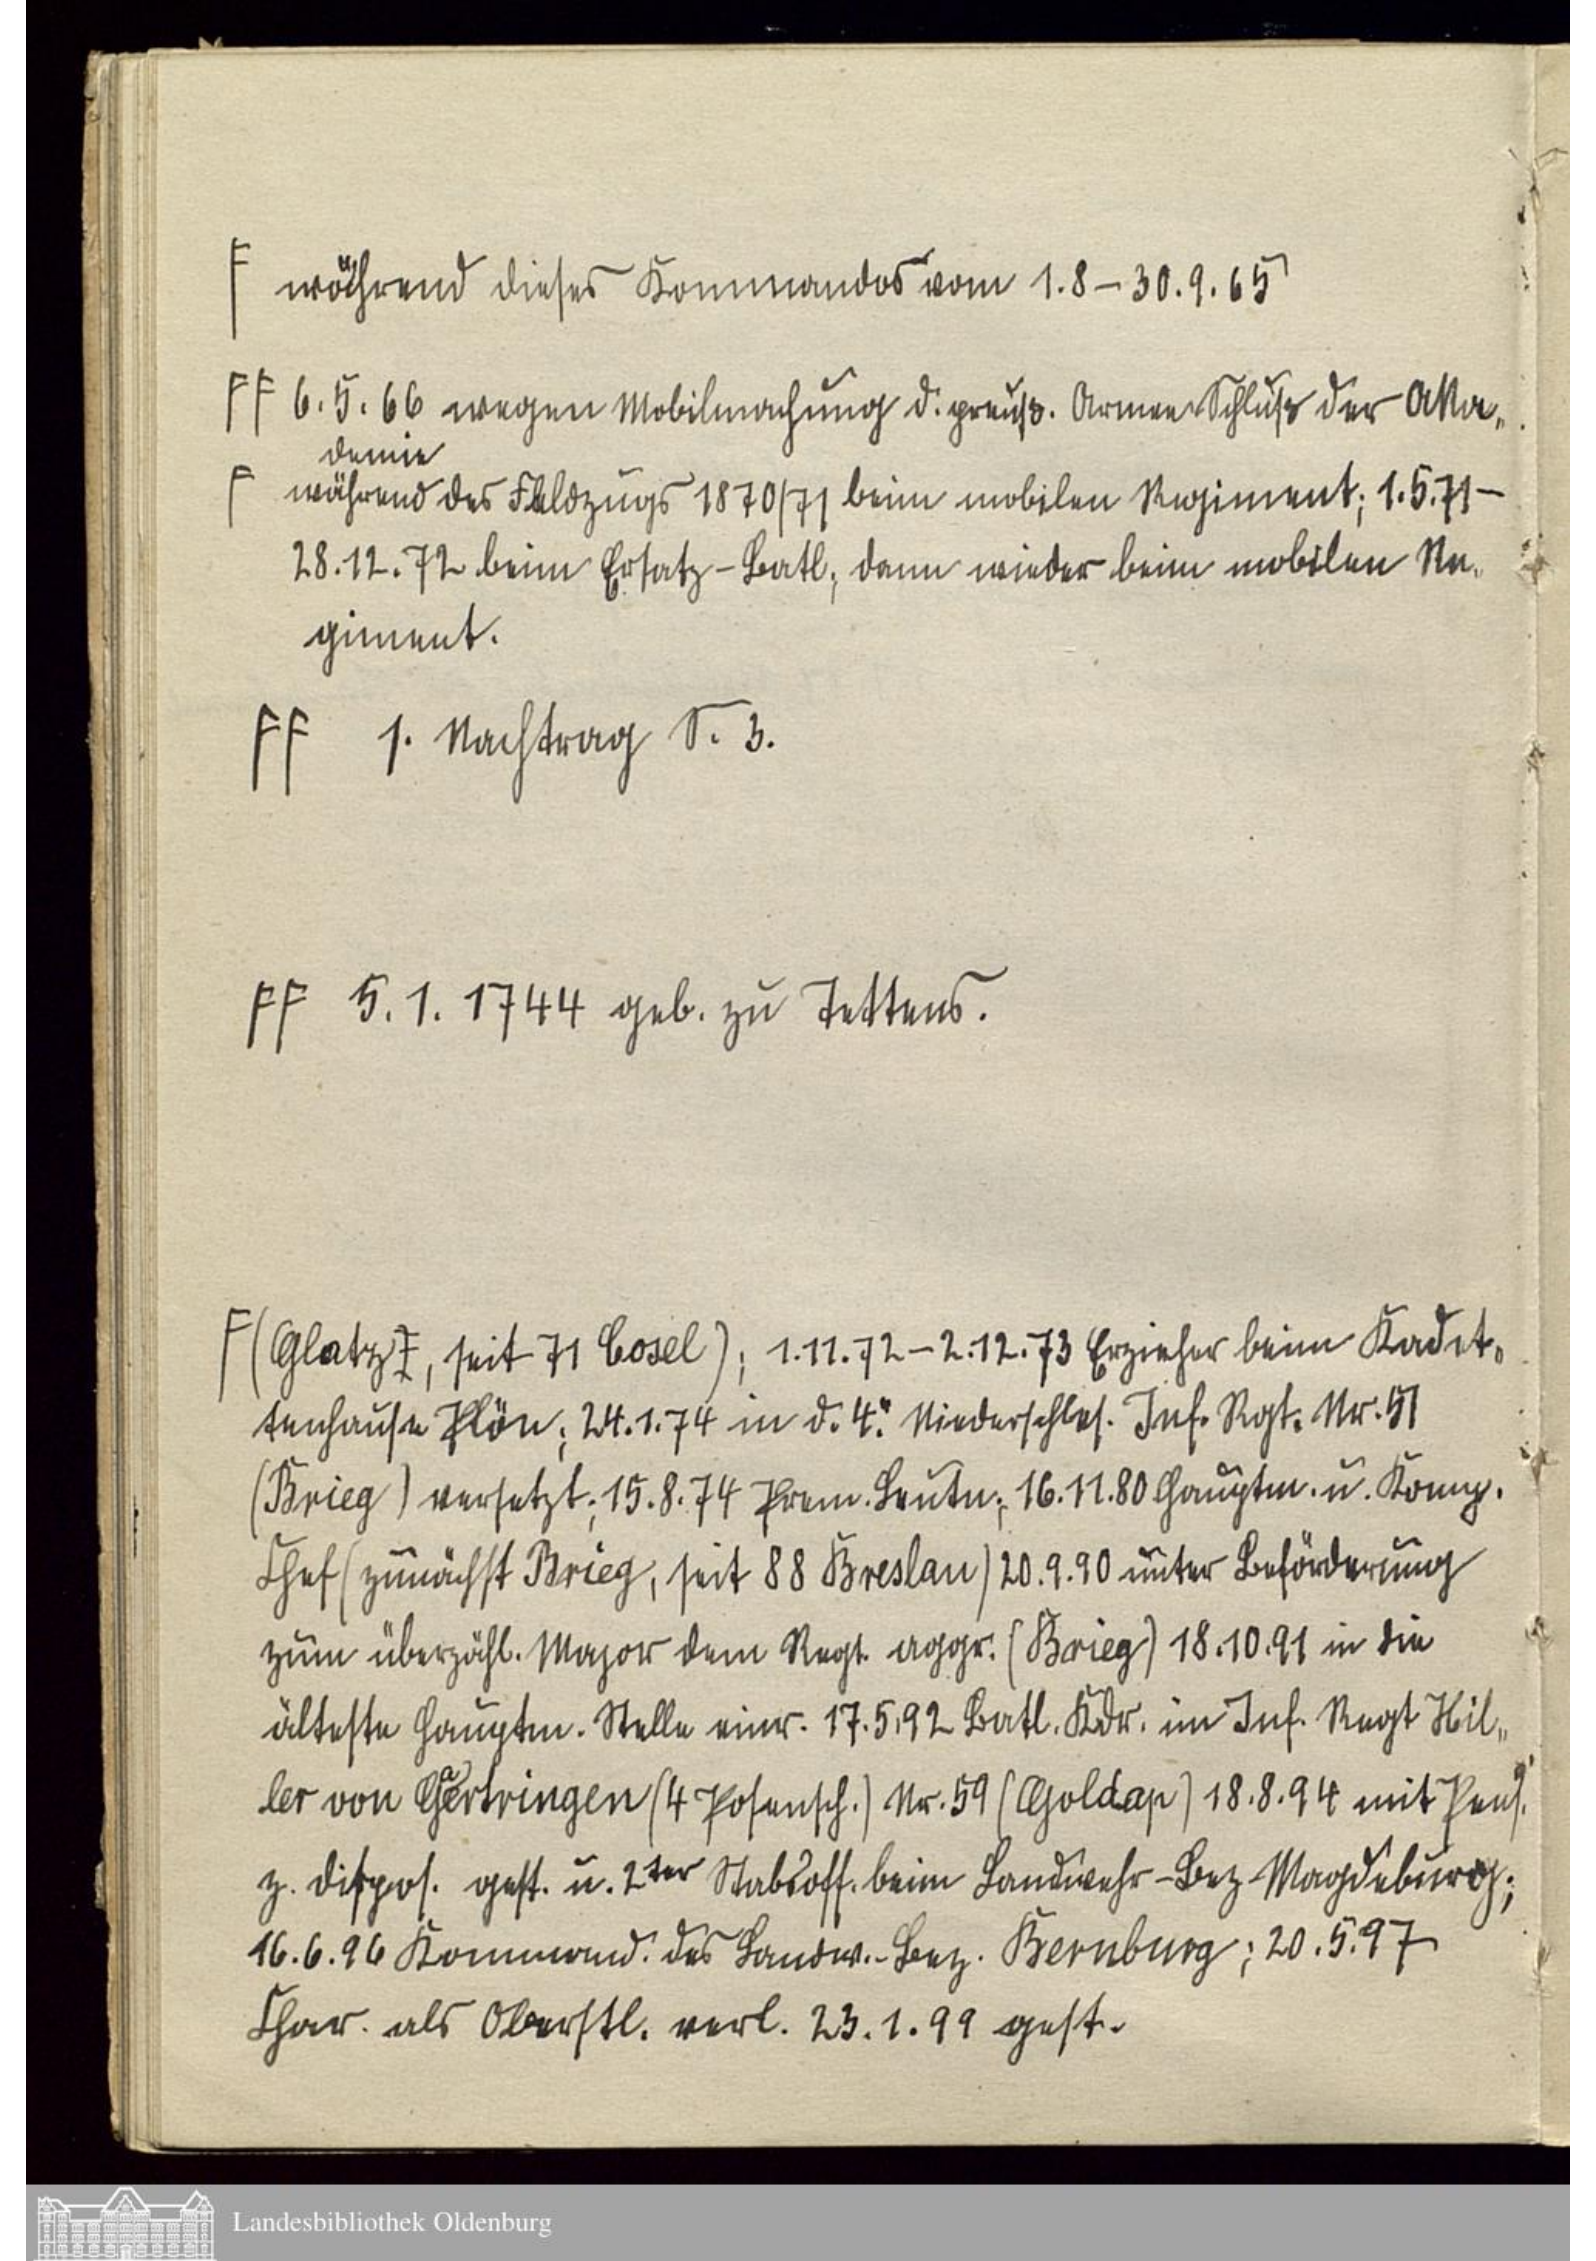 F während dieses Kommandos vom 1.8 – 30.9.65
FF 6.5.66 wegen Mobilmachung d. preuß. Armee Schluß der Aka„
demie
F während des Feldzugs 1870/71 beim mobilen Regiment; 1.5.71 –
28.12.72 beim Ersatz-Batl; dann wieder beim mobilen Re„
giment.
FF 1. Nachtrag S. 3.
FF 5.1.1744 geb. zu Tettens.
F (Glatz, seit 71 Cosel); 1.11.72 – 2.12.73 Erzieher beim Kadet„
tenhause Plön; 24.1.74 in d. 4. Niederschles. Inf. Rgt. Nr. 51
(Brieg) versetzt; 15.8.74 Prem. Leutn; 16.11.80 Hauptm. u. Komp.
Chef (zunächst Brieg, seit 88 Breslau) 20.9.90 unter Beförderung
zum überzähl. Major dem Regt. aggr. (Brieg) 18.10.91 in die
älteste Hauptm. Stelle einr. 17.5.92 Batl. Kdr. im Inf. Regt Hil„
ler von Gärtringen (4 Posensch.) Nr. 59 (Goldap) 18.8.94 mit Pens.
z. Dispos. gest. u. 2ter Stabsoff. beim Landwehr-Bez Magdeburg;
16.6.96 Kommand. des Landw.-Bez. Bernburg; 20.5.97
Char. als Oberstl. verl. 23.1.99 gest.
Landesbibliothek Oldenburg